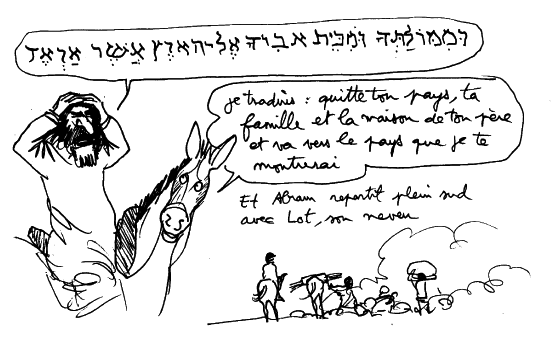 וממולתך ומבית אביך אל־הארץ אשר אראך
je traduis : quitte ton pays, ta
famille et la maison de ton père
et va vers le pays que je te
montrerai
Et Abram repartit plein sud
avec Lot, son neveu